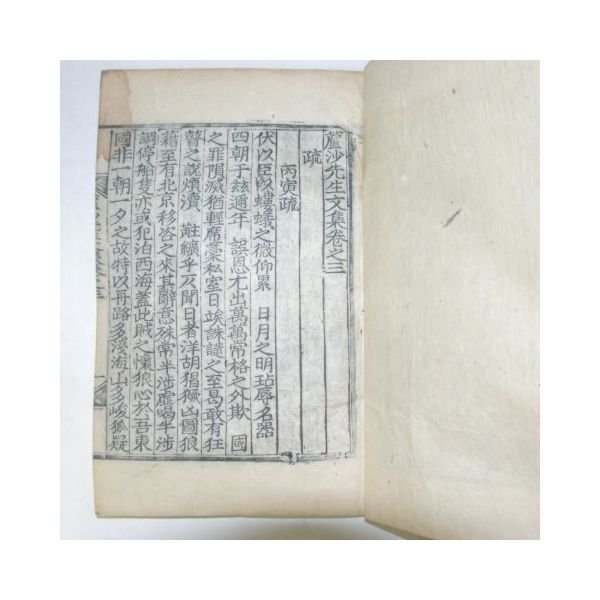 蘆沙先生文集卷之三
疏
丙寅疏
伏以臣以螻蟻之微仰累 日月之明玷辱名器
四朝于玆邇年 誤恩尤出萬萬常格之外欺 國
之罪隕滅猶輕席藁私室日竢誅譴之至曷敢有狂
瞽之說煩瀆 黈纊乎及聞日者洋胡猖獗凶圖狼
藉至有北京移咨之來其辭意殊常半涉虛喝半涉
調停船隻亦或犯泊西海蓋此賊之懷狼心於吾東
國非一朝一夕之故特以舟路多淺海山多峻狐疑